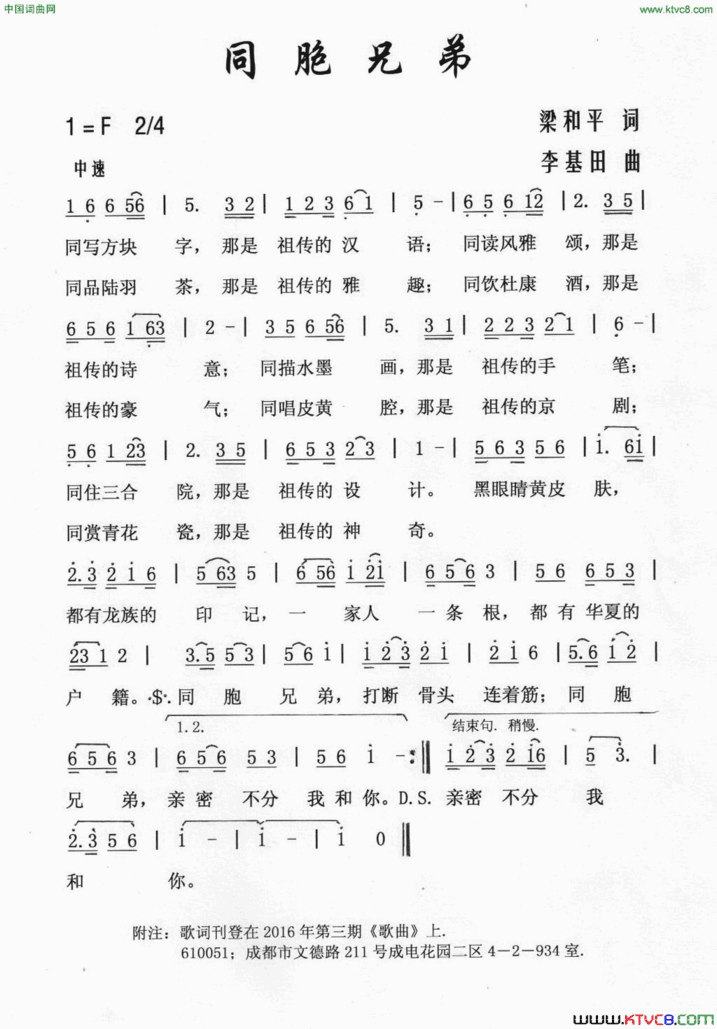 中国词曲网
www.ktvc8.com
同胞兄弟
1=F 2/4
梁和平 词
中速
李基田 曲
1 6 6 56 | 5. 3 2 | 1 2 3 6 1 | 5 - | 6 5 6 12 | 2. 3 5 |
同写方块 字，那是 祖传的 汉 语； 同读风雅 颂，那是
同品陆羽 茶，那是 祖传的 雅 趣； 同饮杜康 酒，那是
6 5 6 1 63 | 2 - | 3 5 6 56 | 5. 3 1 | 2 2 3 2 1 | 6 - |
祖传的诗 意； 同描水墨 画，那是 祖传的手 笔；
祖传的豪 气； 同唱皮黄 腔，那是 祖传的京 剧；
5 6 1 23 | 2. 3 5 | 6 5 3 2 3 | 1 - | 5 6 3 5 6 | i. 6i |
同住三合 院，那是 祖传的 设 计。 黑眼睛黄皮 肤，
同赏青花 瓷，那是 祖传的 神 奇。
2.3 2 i 6 | 5 63 5 | 6 56 i 2i | 6 5 6 3 | 5 6 6 5 3 |
都有龙族的 印 记，一 家人 一 条 根，都 有 华夏的
23 1 2 | 3.5 5 3 | 5 6 i | i 2 3 2 i | 2 i 6 | 5.6 i 2 |
户 籍。·$·同 胞 兄 弟，打断 骨头 连着筋；同 胞
1. 2. 结束句. 稍慢.
6 5 6 3 | 6 5 6 5 3 | 5 6 i -:‖ i 2 3 2 i6 | 5 3. |
兄 弟，亲密 不分 我和你。D.S.亲密 不分 我
2.3 5 6 | i - | i - | i 0 ‖
和 你。
附注：歌词刊登在2016年第三期《歌曲》上.
610051；成都市文德路211号成电花园二区4－2－934室.
www.KTVC8.com